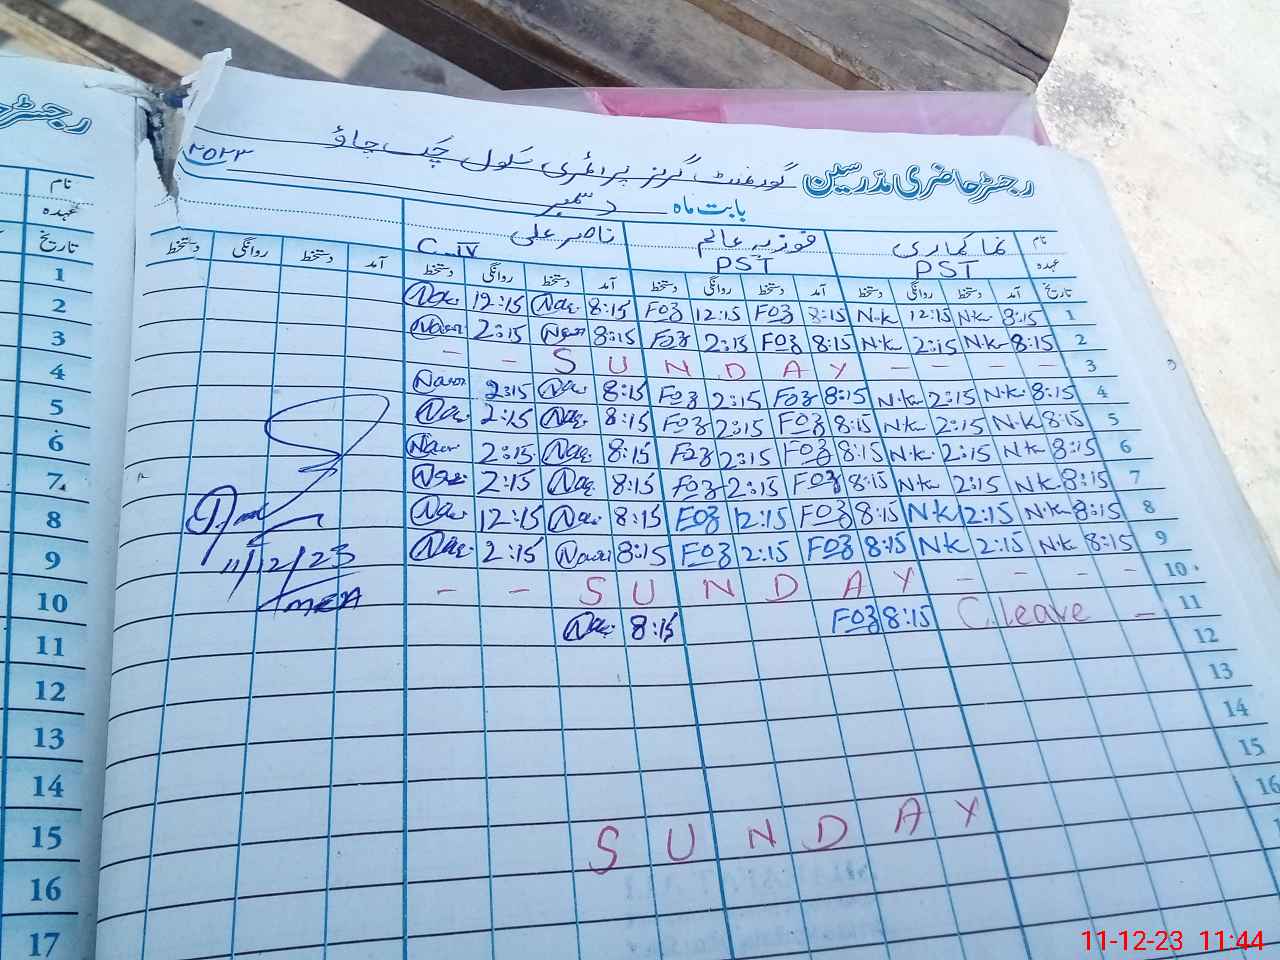 رجسٹر حاضری مدرسین گورنمنٹ گرلز پرائمری سکول چک جاؤ
بابت ماہ دسمبر ۲۰۲۳
نام ناصر علی
عہدہ PST PST C-iv
تاریخ آمد دستخط روانگی دستخط آمد دستخط روانگی دستخط آمد دستخط روانگی دستخط آمد دستخط روانگی دستخط
1 8:15 N.k 12:15 N.k 8:15 Foz 12:15 Foz 8:15 Nas. 12:15 Nas.
2 8:15 N.k 2:15 N.k 8:15 Foz 2:15 Foz 8:15 2:15
3 - - S U N D A Y - - - -
4 8:15 N.k 2:15 N.k 8:15 Foz 2:15 Foz 8:15 Nas. 2:15
5 8:15 N.k 2:15 N.k 8:15 Foz 2:15 Foz 8:15 Nas. 2:15 Nas.
6 8:15 N.k 2:15 N.k 8:15 Foz 2:15 Foz 8:15 Nas. 2:15
7 8:15 N.k 2:15 N.k 8:15 Foz 2:15 Foz 8:15 Nas. 2:15
8 8:15 N.k 12:15 N.k 8:15 Foz 12:15 Foz 8:15 Nas. 12:15 Nas.
9 8:15 N.k 2:15 N.k 8:15 Foz 2:15 Foz 8:15 2:15 Nas.
10 - - S U N D A Y - - - -
11 C.leave - 8:15 Foz 8:15 Nas.
12
13
14
15
16
S U N D A Y
11/12/23
MEA
نام
عہدہ
تاریخ
1
2
3
4
5
6
7
8
9
10
11
12
13
14
15
16
17
11-12-23 11:44